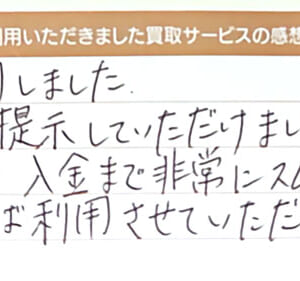 用いただきました買取サービスの感想
しました.
提示していただけまし
入金まで非常にスム
ば利用させていただ